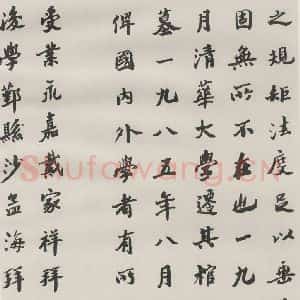 之規矩法度足以垂
固無所不在也一九
月清華大學遷其棺
墓一九八五年八月
俾國內外學者有所
受業永嘉戴家祥拜
後學鄞縣沙孟海拜
Shufawang.CN